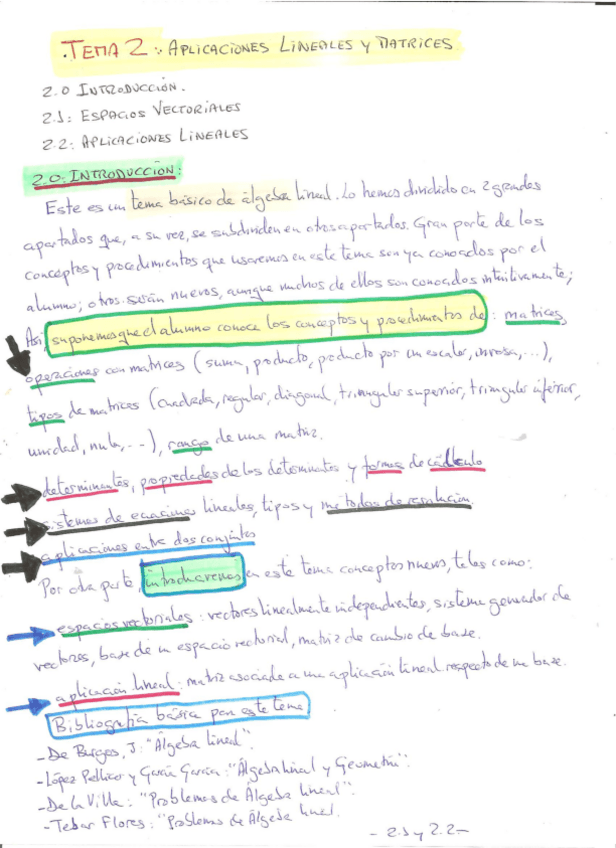 .TEMA 2:. APLICACIONES LINEALES Y MATRICES
2.0 INTRODUCCIÓN.
2.1: ESPACIOS VECTORIALES
2.2: APLICACIONES LINEALES
2.0: INTRODUCCIÓN:
Este es un tema básico de álgebra lineal. Lo hemos dividido en 2 grandes
apartados que, a su vez, se subdividen en otros apartados. Gran parte de los
conceptos y procedimientos que usaremos en este tema son ya conocidos por el
alumno; otros serán nuevos, aunque muchos de ellos son conocidos intuitivamente;
Así, suponemos que el alumno conoce los conceptos y procedimientos de: matrices,
operaciones con matrices (suma, producto, producto por un escalar, inversa, ...),
tipos de matrices (cuadrada, regular, diagonal, triangular superior, triangular inferior,
unidad, nula, ...), rango de una matriz.
determinantes, propiedades de los determinantes y formas de cálculo
sistemas de ecuaciones lineales, tipos y métodos de resolución.
aplicaciones entre dos conjuntos
Por otra parte, introduciremos en este tema conceptos nuevos, tales como:
espacios vectoriales: vectores linealmente independientes, sistema generador de
vectores, base de un espacio vectorial, matriz de cambio de base.
aplicación lineal: matriz asociada a una aplicación lineal respecto de una base.
Bibliografía básica para este tema
- De Burgos, J: "Álgebra lineal".
- López Pellicer y García García: "Álgebra lineal y Geometría".
- De la Villa: "Problemas de Álgebra lineal".
- Tebar Flores: "Problemas de Álgebra lineal.
- 2.1 y 2.2 -